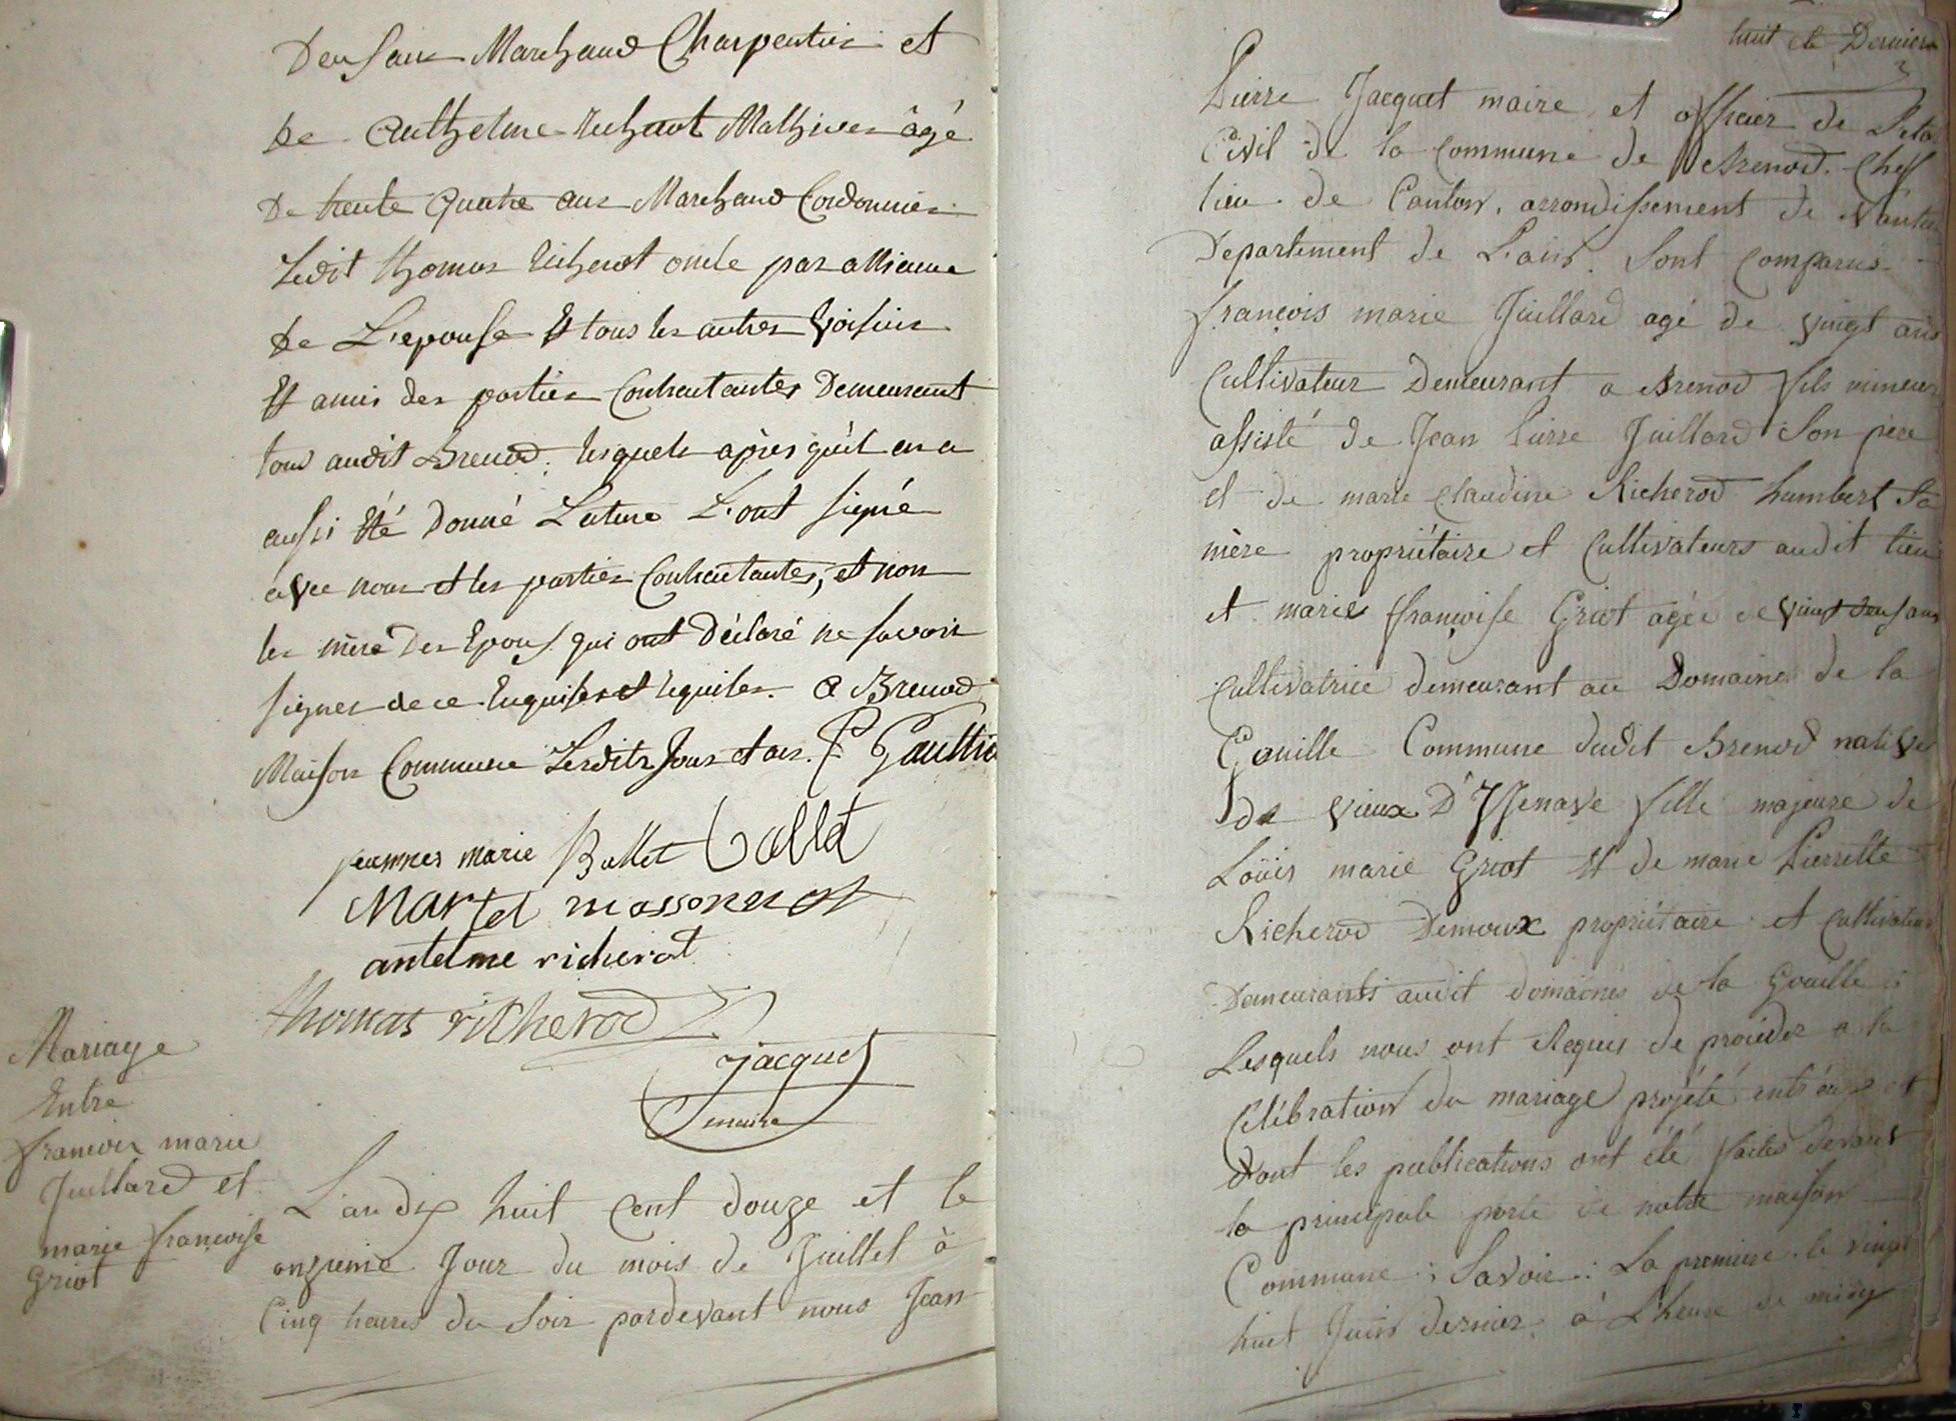 Deux ans Marchand Charpentier et
de Anthelme richerot Mathieu âgé
De trente quatre ans Marchand Cordonnier
Ledit thomas richerot oncle par alliance
de L'epouse Et tous les autres Voisins
Et amis des parties Contractantes Demeurant
tous audit Brenod; lesquels après qu'il en a
aussi Eté Donné Lecture L'ont signé
avec nous et les parties Contractantes, et non
les mère Des Epoux qui ont Déclaré ne savoir
signer de ce Enquises et requises. a Brenod
Maison Commune Lesdits Jour et an. P Gaultie
jeannes marie Ballet Collet
Martel massonnet
antelme richerot
thomas richerod
jacquet
maire
Mariage
Entre
francois marie
Juillard et
marie francoise
Griot
L'an dix huit Cent douze et le
onzieme Jour du mois de Juillet à
Cinq heures du Soir pardevant nous Jean
huit et Derniere
Pierre Jacquet maire et officier de Leta
Civil de la Commune de Brenod. Cheff
lieu de Canton, arrondissement de Nantua
Departement de L'ain. Sont Comparus
françois marie Juillard agé de vingt ans
Cultivateur Demeurant a Brenod fils mineur
assisté de Jean Pierre Juillard Son père
et de marie Claudine Richerod humbert Sa
mère propriétaire et Cultivateurs audit lieu
et marie françoise Griot agée de vingt deux ans
Cultivatrice demeurant au Domaine de la
Gouille Commune dudit Brenod native
de vieux D'YZenave fille majeure de
Loüis marie Griot Et de marie Pierrette
Richerod Demoux propriétaire et Cultivateur
Demeurants audit domaine de la Gouille
Lesquels nous ont Requis de procéder a la
Célébration du mariage projété entr'eux et
dont les publications ont été faites devant
la principale porte de notre maison
Commune; Savoir: La premiere le vingt
huit Juin dernier à L'heure de midy